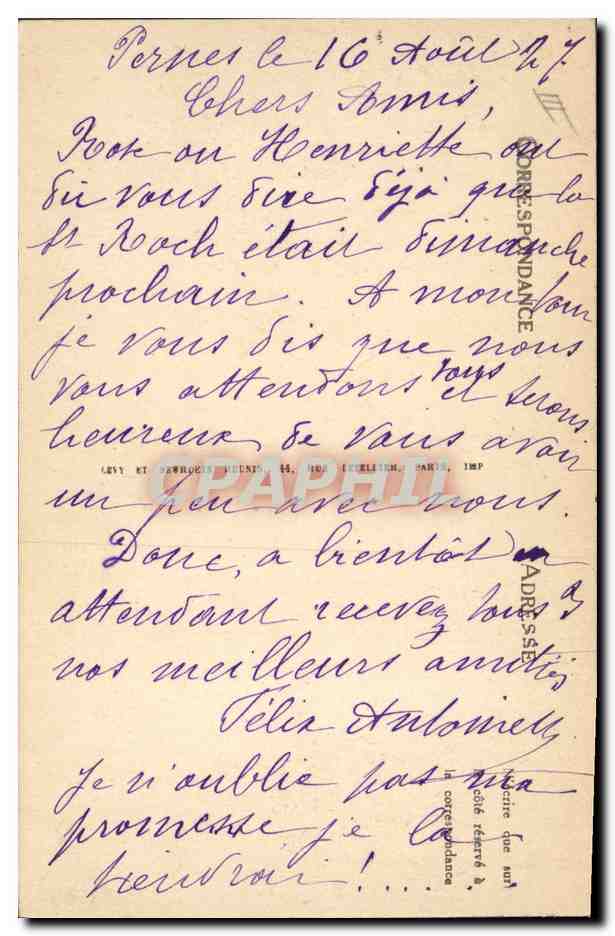 Pernes le 16 Août 27
III
Chers Amis,
Rose ou Henriette ont
dû vous dire déjà que la
St Roch était dimanche
prochain. A mon tour
je vous dis que nous
vous attendons tous et serons
heureux de vous avoir
un peu avec nous.
Donc, a bientôt en
attendant recevez tous 3
nos meilleurs amitiés
Félix Antoinette
Je n'oublie pas ma
promesse je la
tiendrai !....
CORRESPONDANCE
LEVY ET NEURDEIN REUNIS, 44, RUE LETELLIER, PARIS, IMP
CPAPHIL
ADRESSE
N'écrire que sur
le côté réservé à
la correspondance